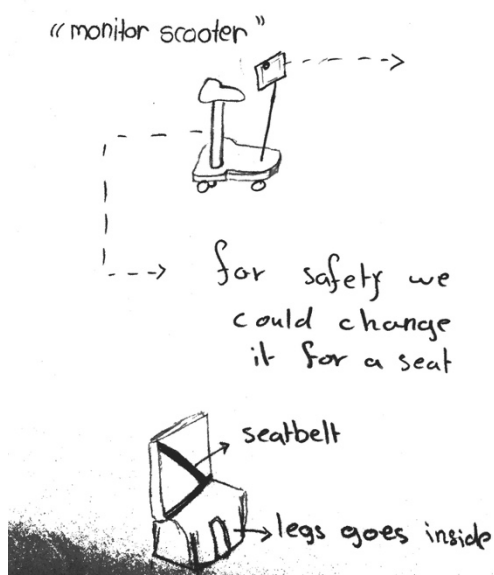 "monitor scooter"
for safety we
could change
it for a seat
seatbelt
legs goes inside